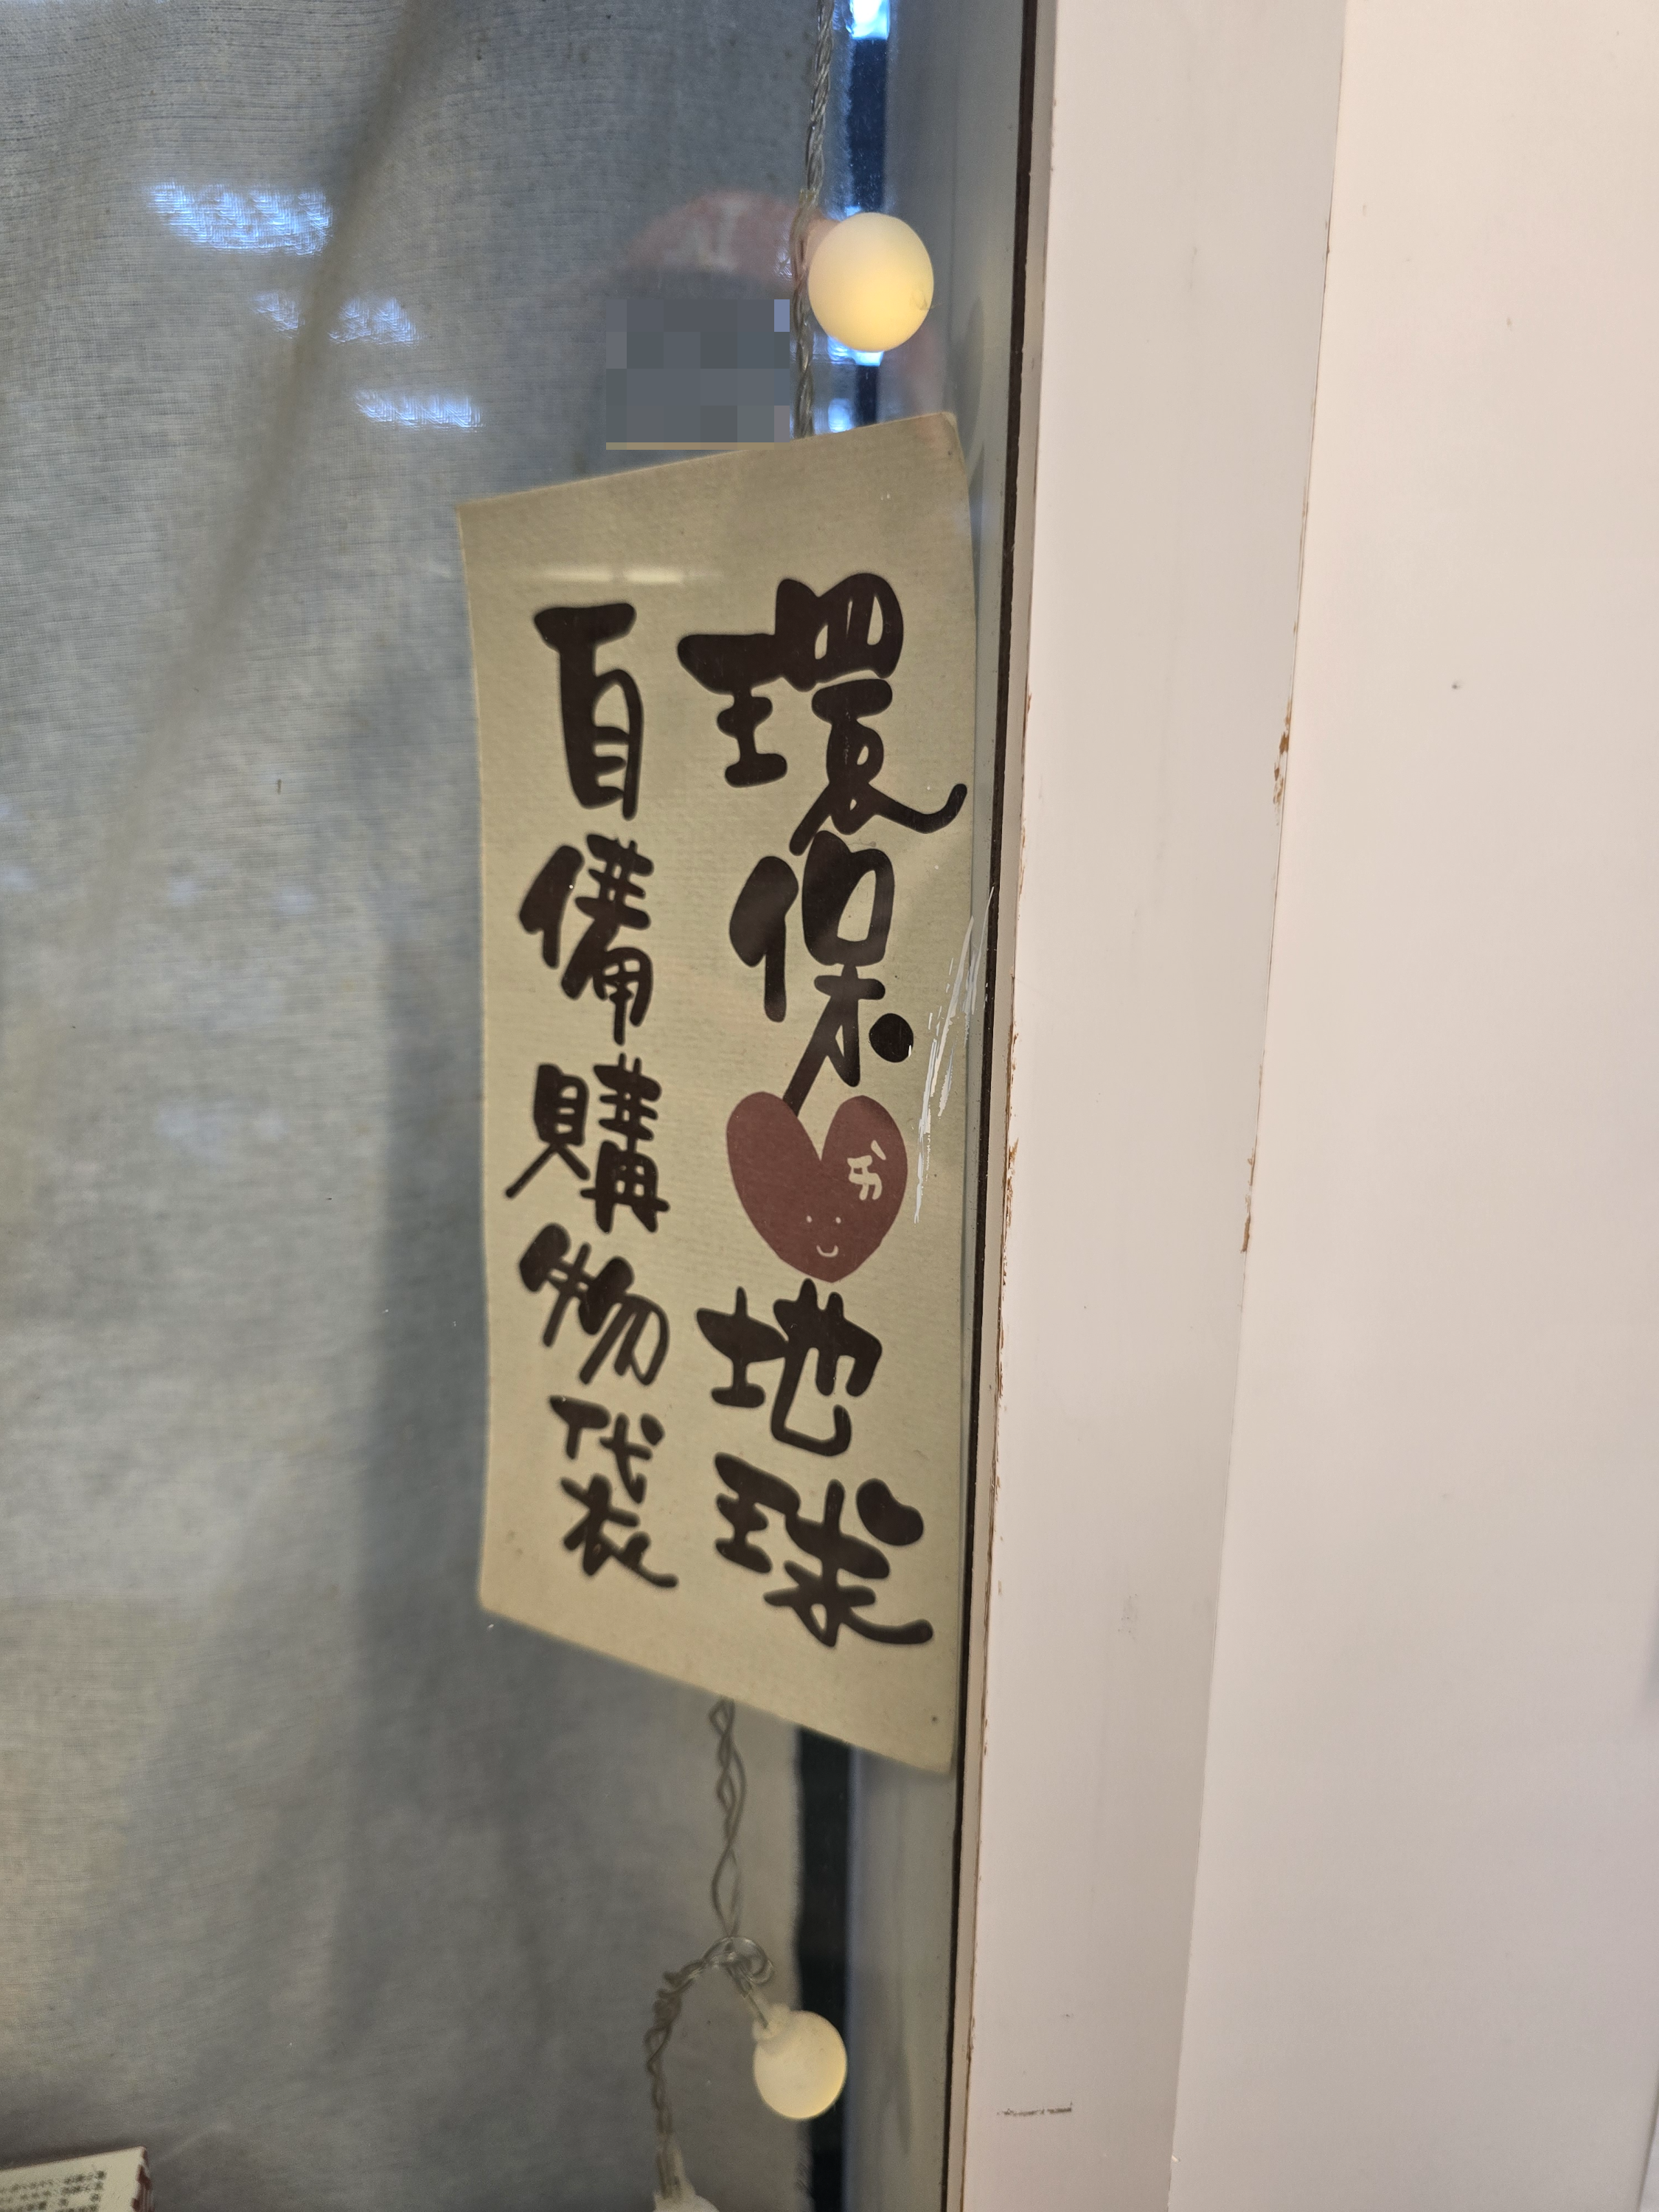 環保地球
自備購物袋